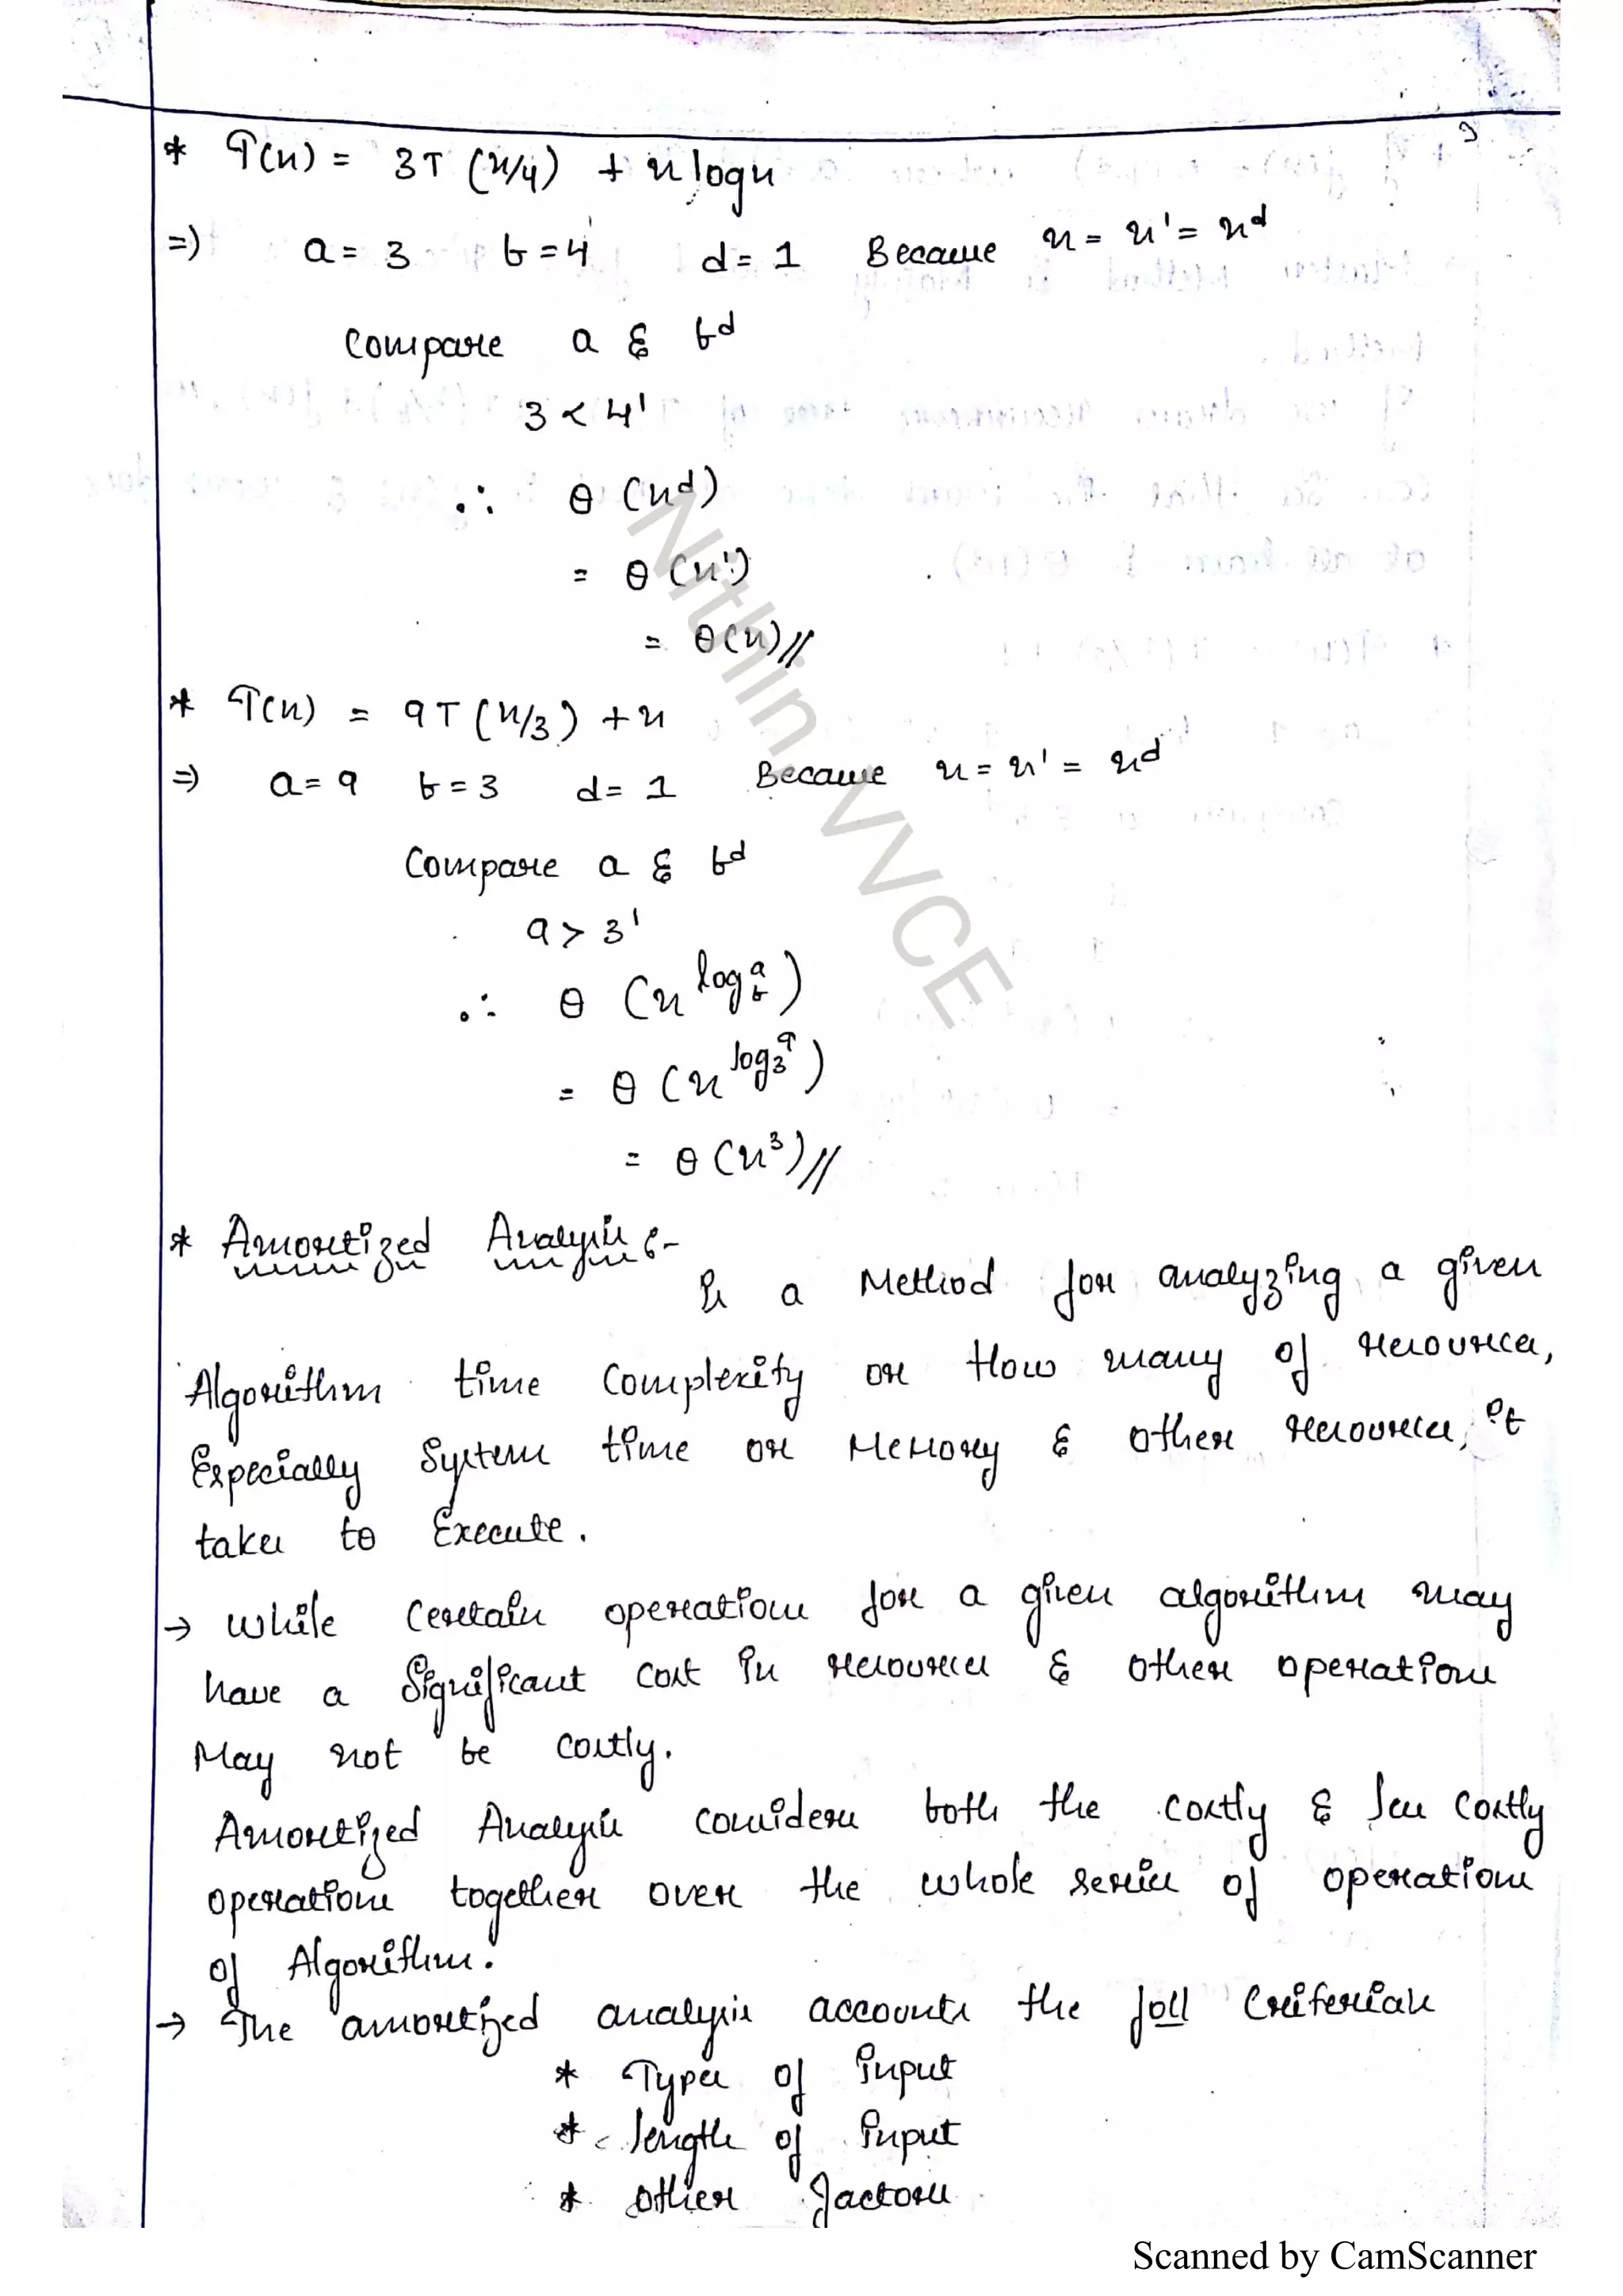 * T(n) = 3T (n/4) + n logn
=> a = 3 b = 4 d = 1 Because n = n¹ = nᵈ
Compare a & bᵈ
3 < 4¹
∴ θ (nᵈ)
= θ (n¹)
= θ(n)//
* T(n) = 9T (n/3) + n
=> a = 9 b = 3 d = 1 Because n = n¹ = nᵈ
Compare a & bᵈ
9 > 3¹
∴ θ (n^log_b^a)
= θ (n^log_3^9)
= θ (n³)//
* Amortized Analysis :-
Is a Method for analyzing a given
Algorithm time Complexity or How many of resources,
Especially System time or Memory & other resources, it
takes to Execute.
→ While Certain operations for a given algorithm may
have a Significant cost in resources & other operations
May not be costly.
Amortized Analysis considers both the costly & less costly
operations together over the whole series of operations
of Algorithm.
→ The amortized analysis accounts the foll Criterian
* Types of input
* length of input
* other factors
Nithin, VVCE
Scanned by CamScanner